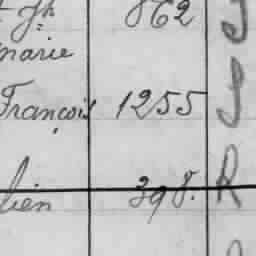 Jh 862
marie
François 1255
lien 398.
R